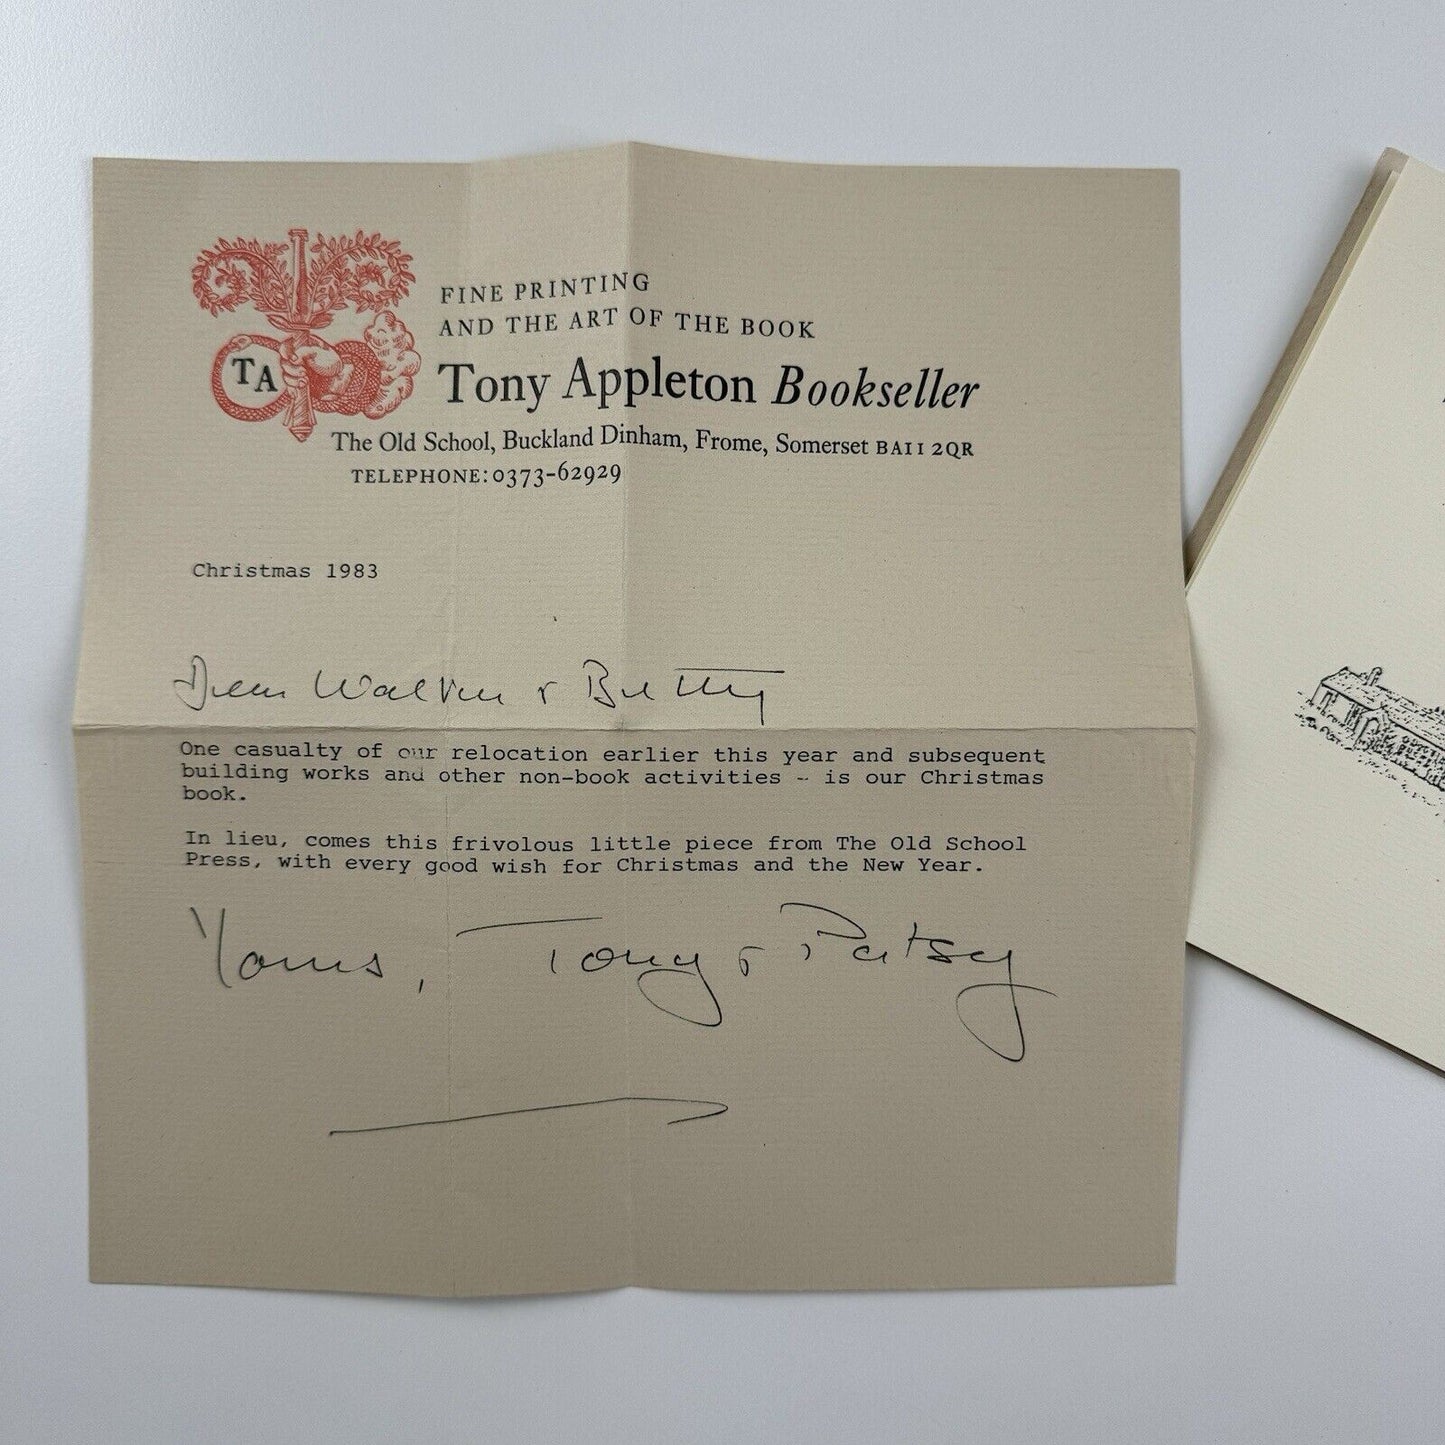 TA
FINE PRINTING
AND THE ART OF THE BOOK
Tony Appleton Bookseller
The Old School, Buckland Dinham, Frome, Somerset BA11 2QR
TELEPHONE: 0373-62929
Christmas 1983
Dear Walker & Betty
One casualty of our relocation earlier this year and subsequent
building works and other non-book activities - is our Christmas
book.
In lieu, comes this frivolous little piece from The Old School
Press, with every good wish for Christmas and the New Year.
Yours, Tony & Patsy